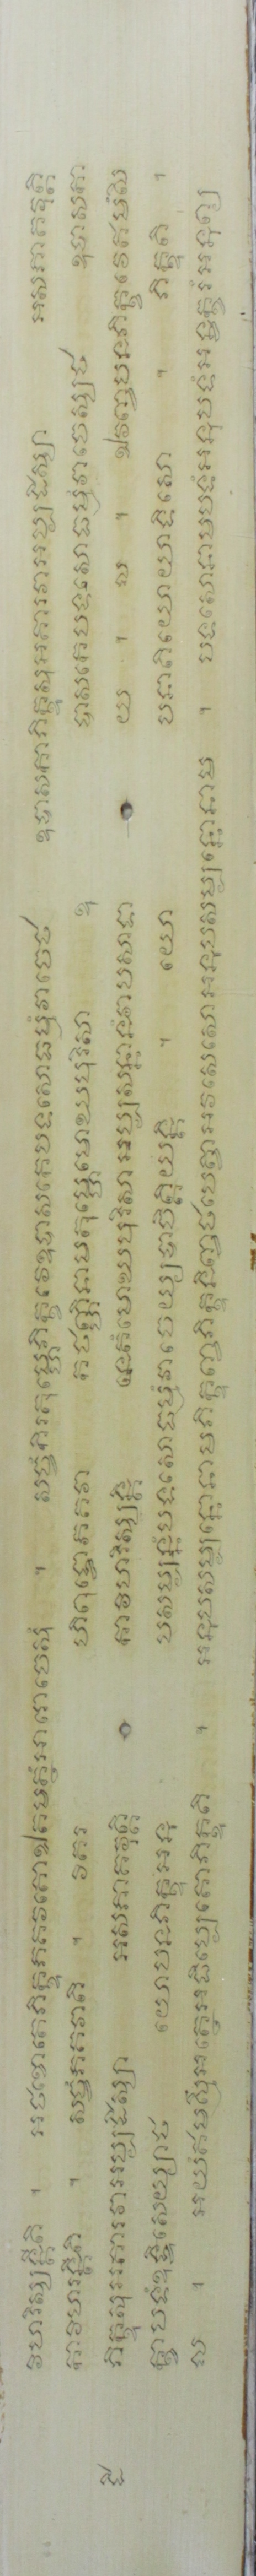 វិហរិស្សន្តីតិ ។ អថខោតេភិក្ខូភគវតោឯតមត្ថំអារោចេសុំ ។ សច្ចំកិរតុម្ហេភិក្ខវេឧបាសកេបទសោធម្មំវាចេថ ឧបាសកាភិក្ខូសុអគារវាអប្បដិស្សា អសភាគវុត្តិ
កាវិហរន្តីតិ ។ សច្ចំភគវាតិ ។ វិគរ ហិពុទ្ធោភគវា កថញ្ហិនាមតុម្ហេមោឃបុរិសា ឧ បាសកេបទសោធម្មំវាចេស្សថ ឧបាសកា
ភិក្ខូសុអគារវាអប្បដិស្សា អសភាគវុត្តិ កាវិហរិស្សន្តិ នេតំមោឃបុរិសាអប្បសន្នានំវាបសាទា យ ។ ល ។ ឯវញ្ចបនភិក្ខវេឥមំសិ
ក្ខាបទំឧទ្ទិសេយ្យាថ យោបនភិក្ខុអនុ បសម្បន្នំបទសោធម្មំវាចេយ្យបាចិត្តិយន្តិ ។ យោ បនាតិយោយាទិសោ ។ ភិក្ខូតិ ។
ល ។ អយំឥមស្មឹអត្ថេអធិប្បេតោភិក្ខូតិ ។ អនុបសម្បន្នោនាមភិក្ខុញ្ចភិក្ខុនិញ្ចឋបេត្វាអវសេសោអនុបសម្បន្នោនាម ។ បទសោនាមបទំអនុបទំអន្វក្ខរំអនុព្យ